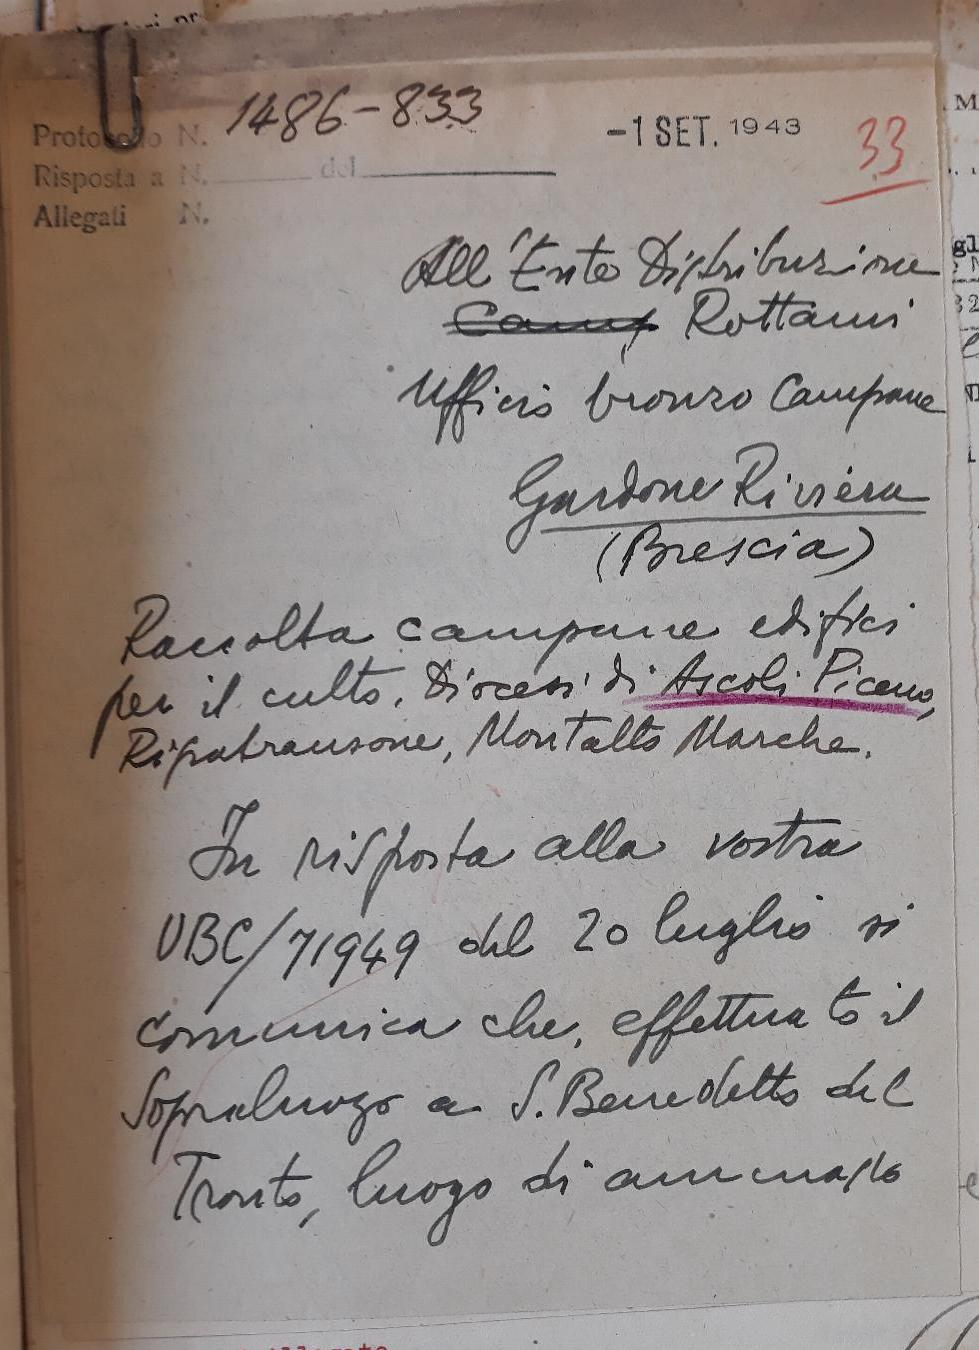 Protocollo N. 1486-833
-1 SET. 1943
33
Risposta a N. del
Allegati N.
All'Ente Distribuzione
Camp Rottami
Ufficio bronzo Campane
Gardone Riviera
(Brescia)
Raccolta campane edifici
per il culto. Diocesi di Ascoli Piceno,
Ripatransone, Montalto Marche.
In risposta alla vostra
UBC/71949 del 20 luglio si
comunica che, effettuato il
Sopraluogo a S. Benedetto del
Tronto, luogo di ammasso